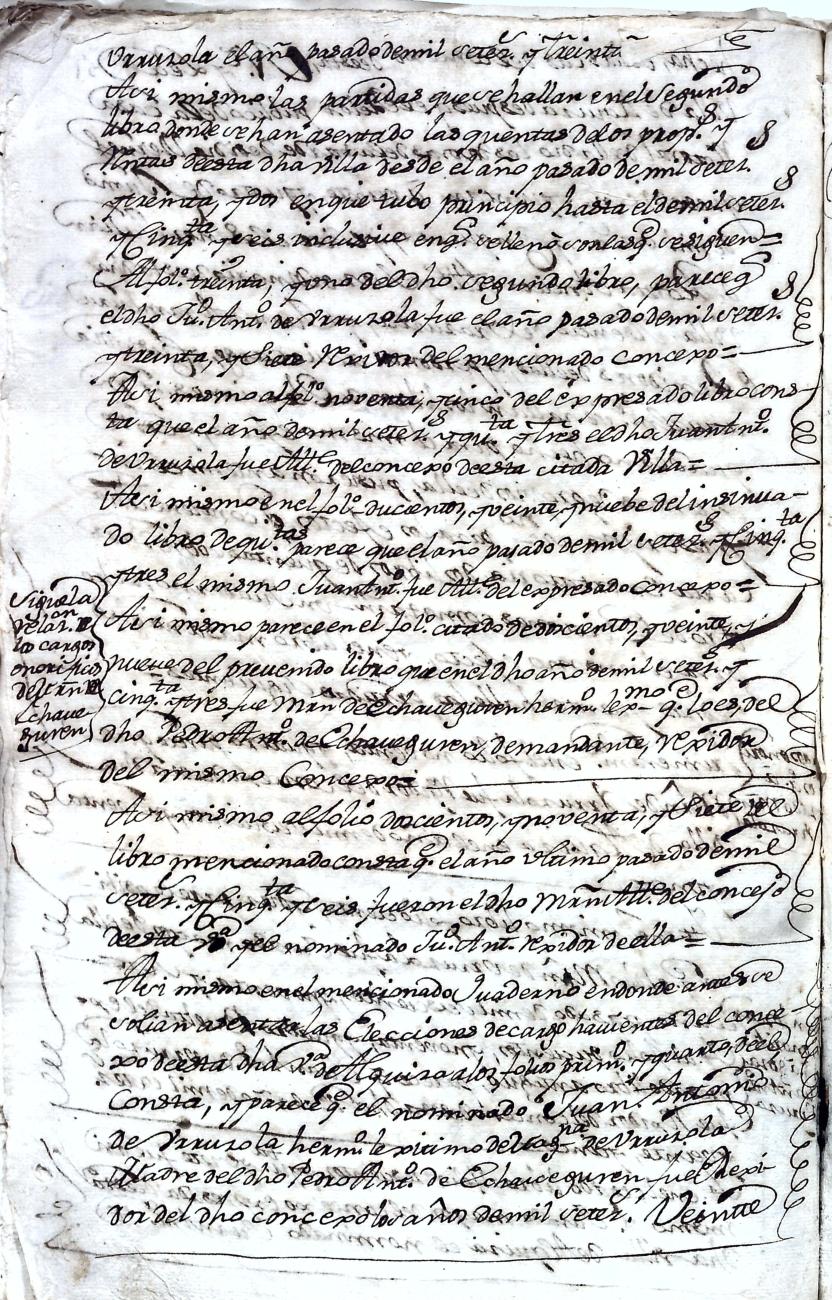 Urruzola el añ pasado de mil setez.s y treinta
Asi mismo las partidas que se hallan en el Segundo
libro donde se han asentado las quentas de los prop.s y
Rentas de esta dha villa desde el año pasado de mil setez.s
y treinta, y dos en que tubo principio hasta el de mil setez.s
y Cinq.ta y seis inclusive en q.e se lleno son las q.e se siguen=
Al fol.o treinta, y uno del dho segundo libro, parece q.e
el dho Ju.o Ant.o de Urruzola fue el año pasado de mil setez.s
y treinta, y siete Rexidor del mencionado concexo=
Asi mismo al fol.o noventa, y cinco del expresado libro cons-
ta que el año de mil setez.s y qu.ta y tres el dho Juan Ant.o
de Urruzola fue All.e del concexo de esta citada Villa=
Asi mismo en el fol.o ducientos, y veinte, y nuebe del insinua-
do libro de qu.tas parece que el año pasado de mil setez.s y Cinq.ta
y tres el mismo Juan Ant.o fue All.e del expresado concexo=
Asi mismo parece en el fol.o citado de docientos, y veinte, y
nueve del prevenido libro que en el dho año de mil setez.s y
cinq.ta y tres fue Mrn de Echaveguren herm.o lex.mo q.e lo es, del
dho Pedro Ant.o de Echaveguren, demandante, Rexidor
del mismo Concexo=
Sigue la
relaz.on de
los cargos
onorificos
de Mrn de
Echave
guren
Asi mismo al folio docientos, y noventa, y siete del
libro mencionado consta q.e el año ultimo pasado de mil
setez.s y Cinq.ta y seis fueron el dho Mrn All.e del concejo
de esta V.a y el nominado Ju.o Ant.o Rexidor de ella=
Asi mismo en el mencionado Quaderno en donde antes se
solian asentar las Elecciones de cargo havientes del conce
xo de esta dha V.a de Alquiza a los folios prim.o y quarto, de el
Consta, y parece q.e el nominado Juan Antonio
de Urruzola herm.o lexitimo de de Urruzola
Madre del dho Pedro Ant.o de Echaveguren fue Rexi
dor del dho concexo los años de mil setez.s Veinte